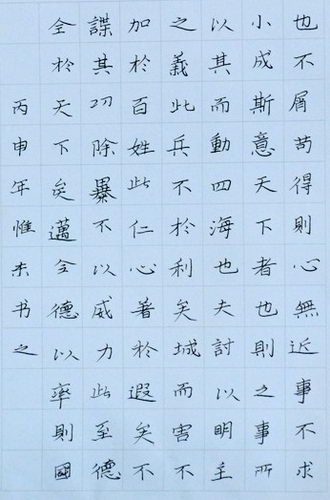 也不屑苟得則心無近事不求
小成斯意天下者也則之事所
以其而動四海也夫討以明主
之義此兵不於利矣城而害不
加於百姓此仁心著於遐矣不
諜其除暴不以威力此至德
全於天下矣邁全德以率則國
丙申年惟未书之